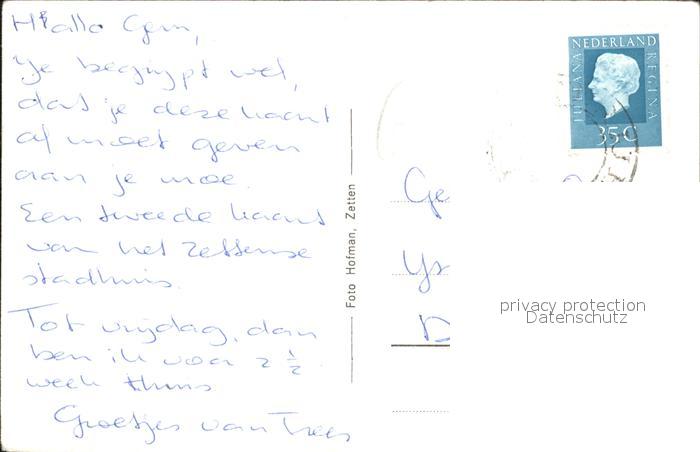 Hallo Gem,
Je begrijpt wel,
dat je deze kaart
af moet geven
aan je moe.
Een tweede kaart
van het Zettense
stadhuis.
Tot vrijdag, dan
ben ik voor 2 ½
week thuis
Groetjes van Trees
Foto Hofman, Zetten
NEDERLAND
JULIANA REGINA
35 C
Ge
Ys
D
privacy protection
Datenschutz